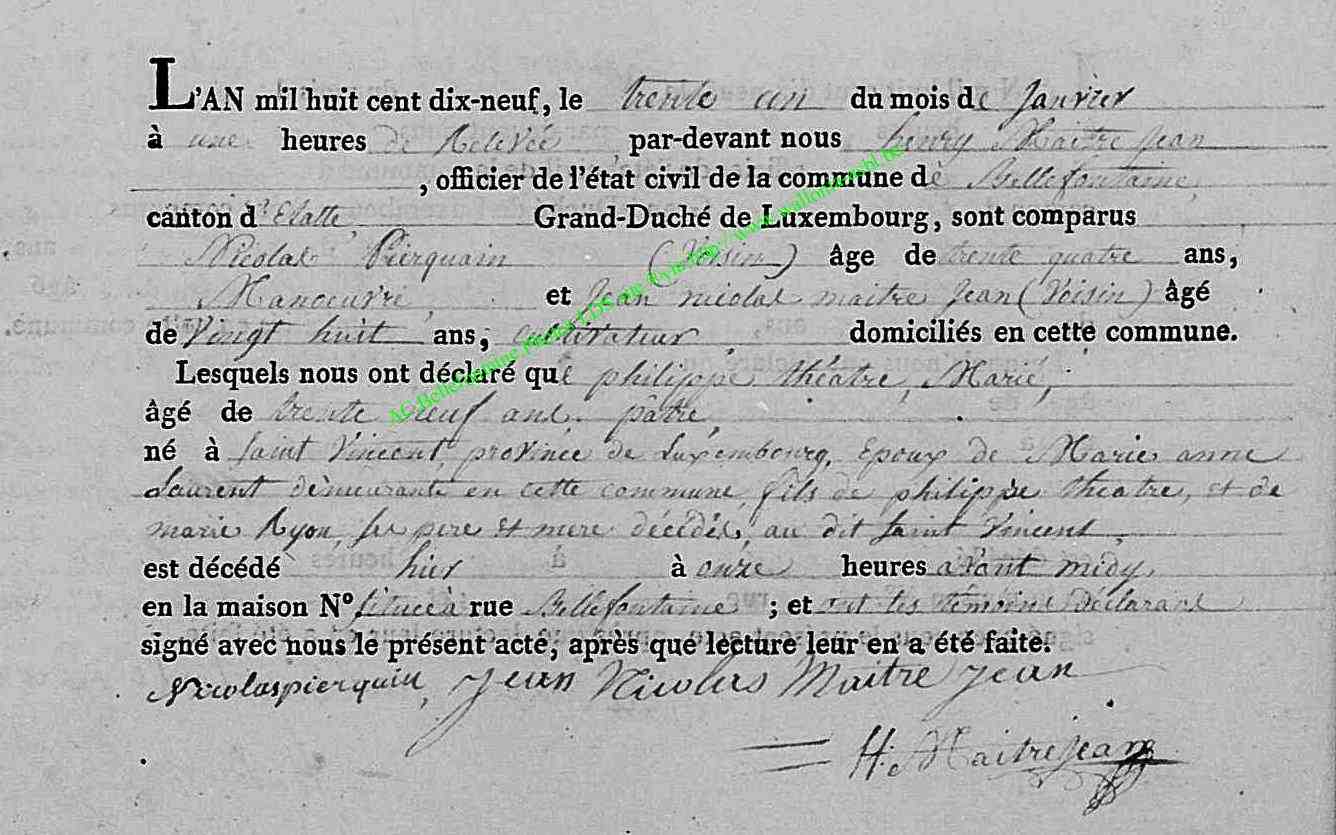 L'AN mil huit cent dix-neuf, le trente un du mois de Janvier
à une heures de Relevée par-devant nous henry Maitre jean
, officier de l'état civil de la commune de Bellefontaine,
canton d'Etalle, Grand-Duché de Luxembourg, sont comparus
Nicolas Pierquain (Voisin) âge de trente quatre ans,
Manoeuvre, et Jean nicolas maitre Jean (Voisin) âgé
de Vingt huit ans, cultivateur, domiciliés en cette commune.
Lesquels nous ont déclaré que philippe théatre, Marié,
âgé de trente neuf ans. pâtre,
né à Saint Vincent, province de Luxembourg, Epoux de Marie anne
Laurent demeurante en cette commune, fils de philippe theatre, et de
marie Ryon, ses pere et mere décédés, au dit Saint Vincent,
est décédé hier à onze heures avant midy,
en la maison N° située à rue Bellefontaine ; et ont les témoins déclarans
signé avec nous le présent acte, après que lecture leur en a été faite.
Nicolas pierquin, Jean Nicolas Maitre jean
H. Maitrejean